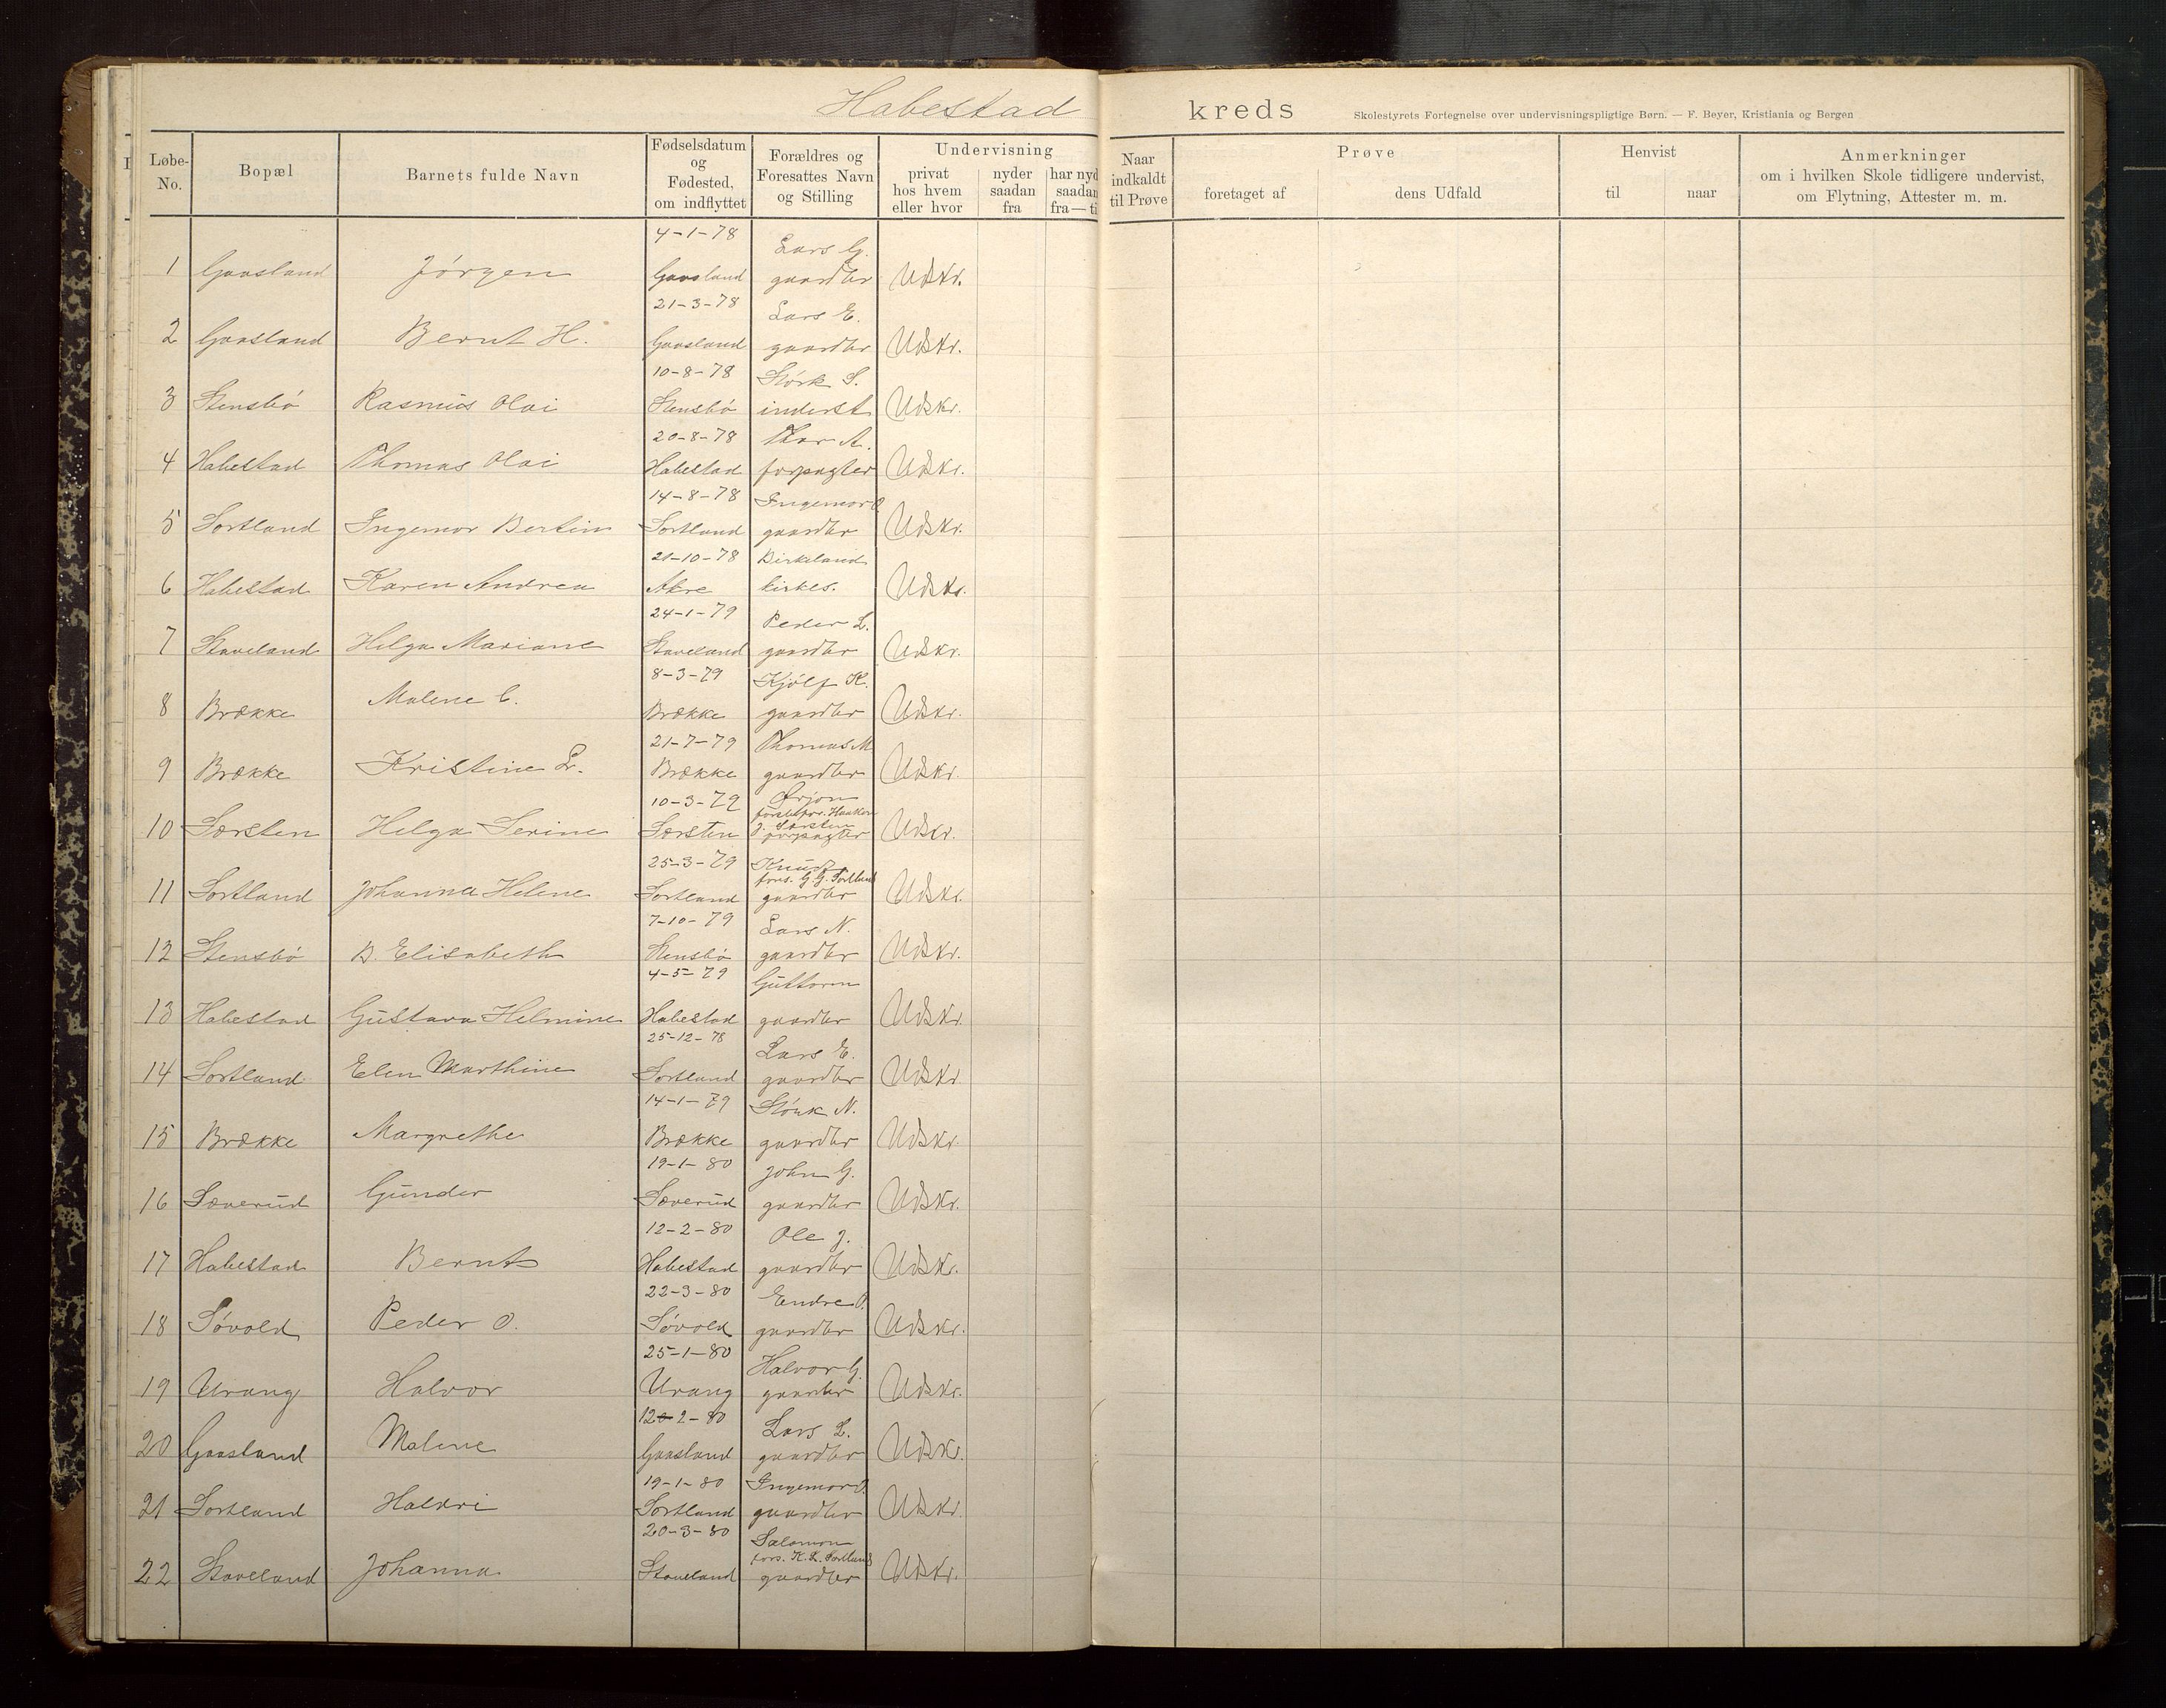 Habestad kreds
Skolestyrets Fortegnelse over undervisningspligtige Børn. — F. Beyer, Kristiania og Bergen
Løbe-No. Bopæl Barnets fulde Navn Fødselsdatum og Fødested, om indflyttet Forældres og Foresattes Navn og Stilling Undervisning privat hos hvem eller hvor nyder saadan fra har nyd saadan fra — ti Naar indkaldt til Prøve Prøve foretaget af dens Udfald Henvist til naar Anmerkninger om i hvilken Skole tidligere undervist, om Flytning, Attester m. m.
4-1-78 Lars G.
1 Gaasland Jörgen Gaasland gaardbr Udskr.
21-3-78 Lars E.
2 Gaasland Bernt H. Gaasland gaardbr Udskr.
10-8-78 Störk S.
3 Stensbö Rasmus Olai Stensbö inderst Udskr.
20-8-78 Thor A.
4 Habestad Thomas Olai Habestad forpagter Udskr.
14-8-78 Ingemor O.
5 Sortland Ingemor Bertin Sortland gaardbr Udskr.
21-10-78 Birkeland
6 Habestad Karen Andrea Akre kirkes. Udskr.
24-1-79 Peder L.
7 Staveland Helga Mariane Staveland gaardbr Udskr.
8-3-79 Kjölf K.
8 Brække Malene C. Brække gaardbr Udskr.
21-7-79 Thomas M
9 Brække Kristine L. Brække gaardbr Udskr.
10-3-79 Örjon
10 Særsten Helga Serine Særsten forpagter Udskr.
25-3-79 Knud
fors. G. G. Sortland
11 Sortland Johanna Helene Sortland gaardbr Udskr.
7-10-79 Lars N.
12 Stensbö B. Elisabeth Stensbö gaardbr Udskr.
4-5-79 Guttorm
13 Habestad Gustava Helmine Habestad gaardbr Udskr.
25-12-78 Lars E.
14 Sortland Elen Marthine Sortland gaardbr Udskr
14-1-79 Störk N.
15 Brække Margrethe Brække gaardbr Udskr.
19-1-80 John G.
16 Sæverud Gunder Sæverud gaardbr Udskr.
12-2-80 Ole J.
17 Habestad Bernt Habestad gaardbr Udskr.
22-3-80 Endre O.
18 Sövold Peder O. Sövold gaardbr Udskr.
25-1-80 Halvor G.
19 Urang Halvor Urang gaardbr Udskr.
12-2-80 Lars L.
20 Gaasland Malene Gaasland gaardbr Udskr.
19-1-80 Ingemor O.
21 Sortland Haldri Sortland gaardbr Udskr.
20-3-80 Salomon
fors. K. L. Sortland
22 Staveland Johanna Staveland gaardbr Udskr.